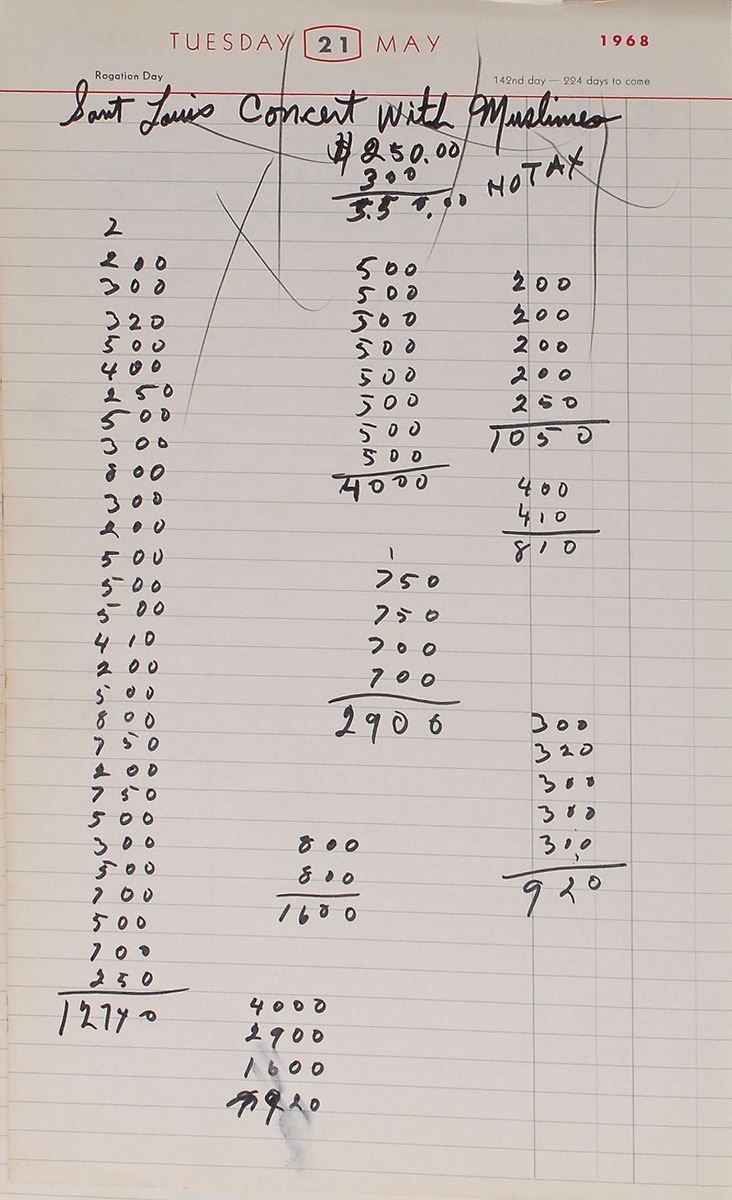 TUESDAY 21 MAY 1968
Rogation Day 142nd day — 224 days to come
Sant Louis Concert with Muslimes
$ 250.00
300
550.00
NO TAX
2
200
300
320
500
400
250
500
300
800
300
200
500
500
500
410
200
500
800
750
200
750
500
300
500
700
500
700
250
12740
500
500
500
500
500
500
500
500
4000
1
750
750
700
700
2900
800
800
1600
4000
2900
1600
920
200
200
200
200
250
1050
400
410
810
300
320
300
300
300
920